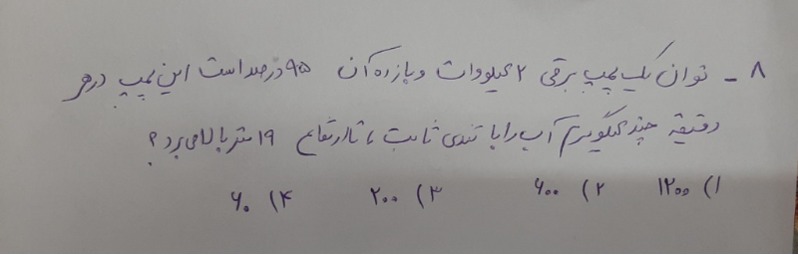 ۸ - توان یک پمپ برقی ۲ کیلووات و بازده آن ۹۵ درصد است این پمپ در هر
دقیقه چند کیلوگرم آب را با تندی ثابت ، تا ارتفاع ۱۹ متر بالا می برد ؟
۱) ۱۲۰۰ ۲) ۶۰۰ ۳) ۲۰۰ ۴) ۶۰